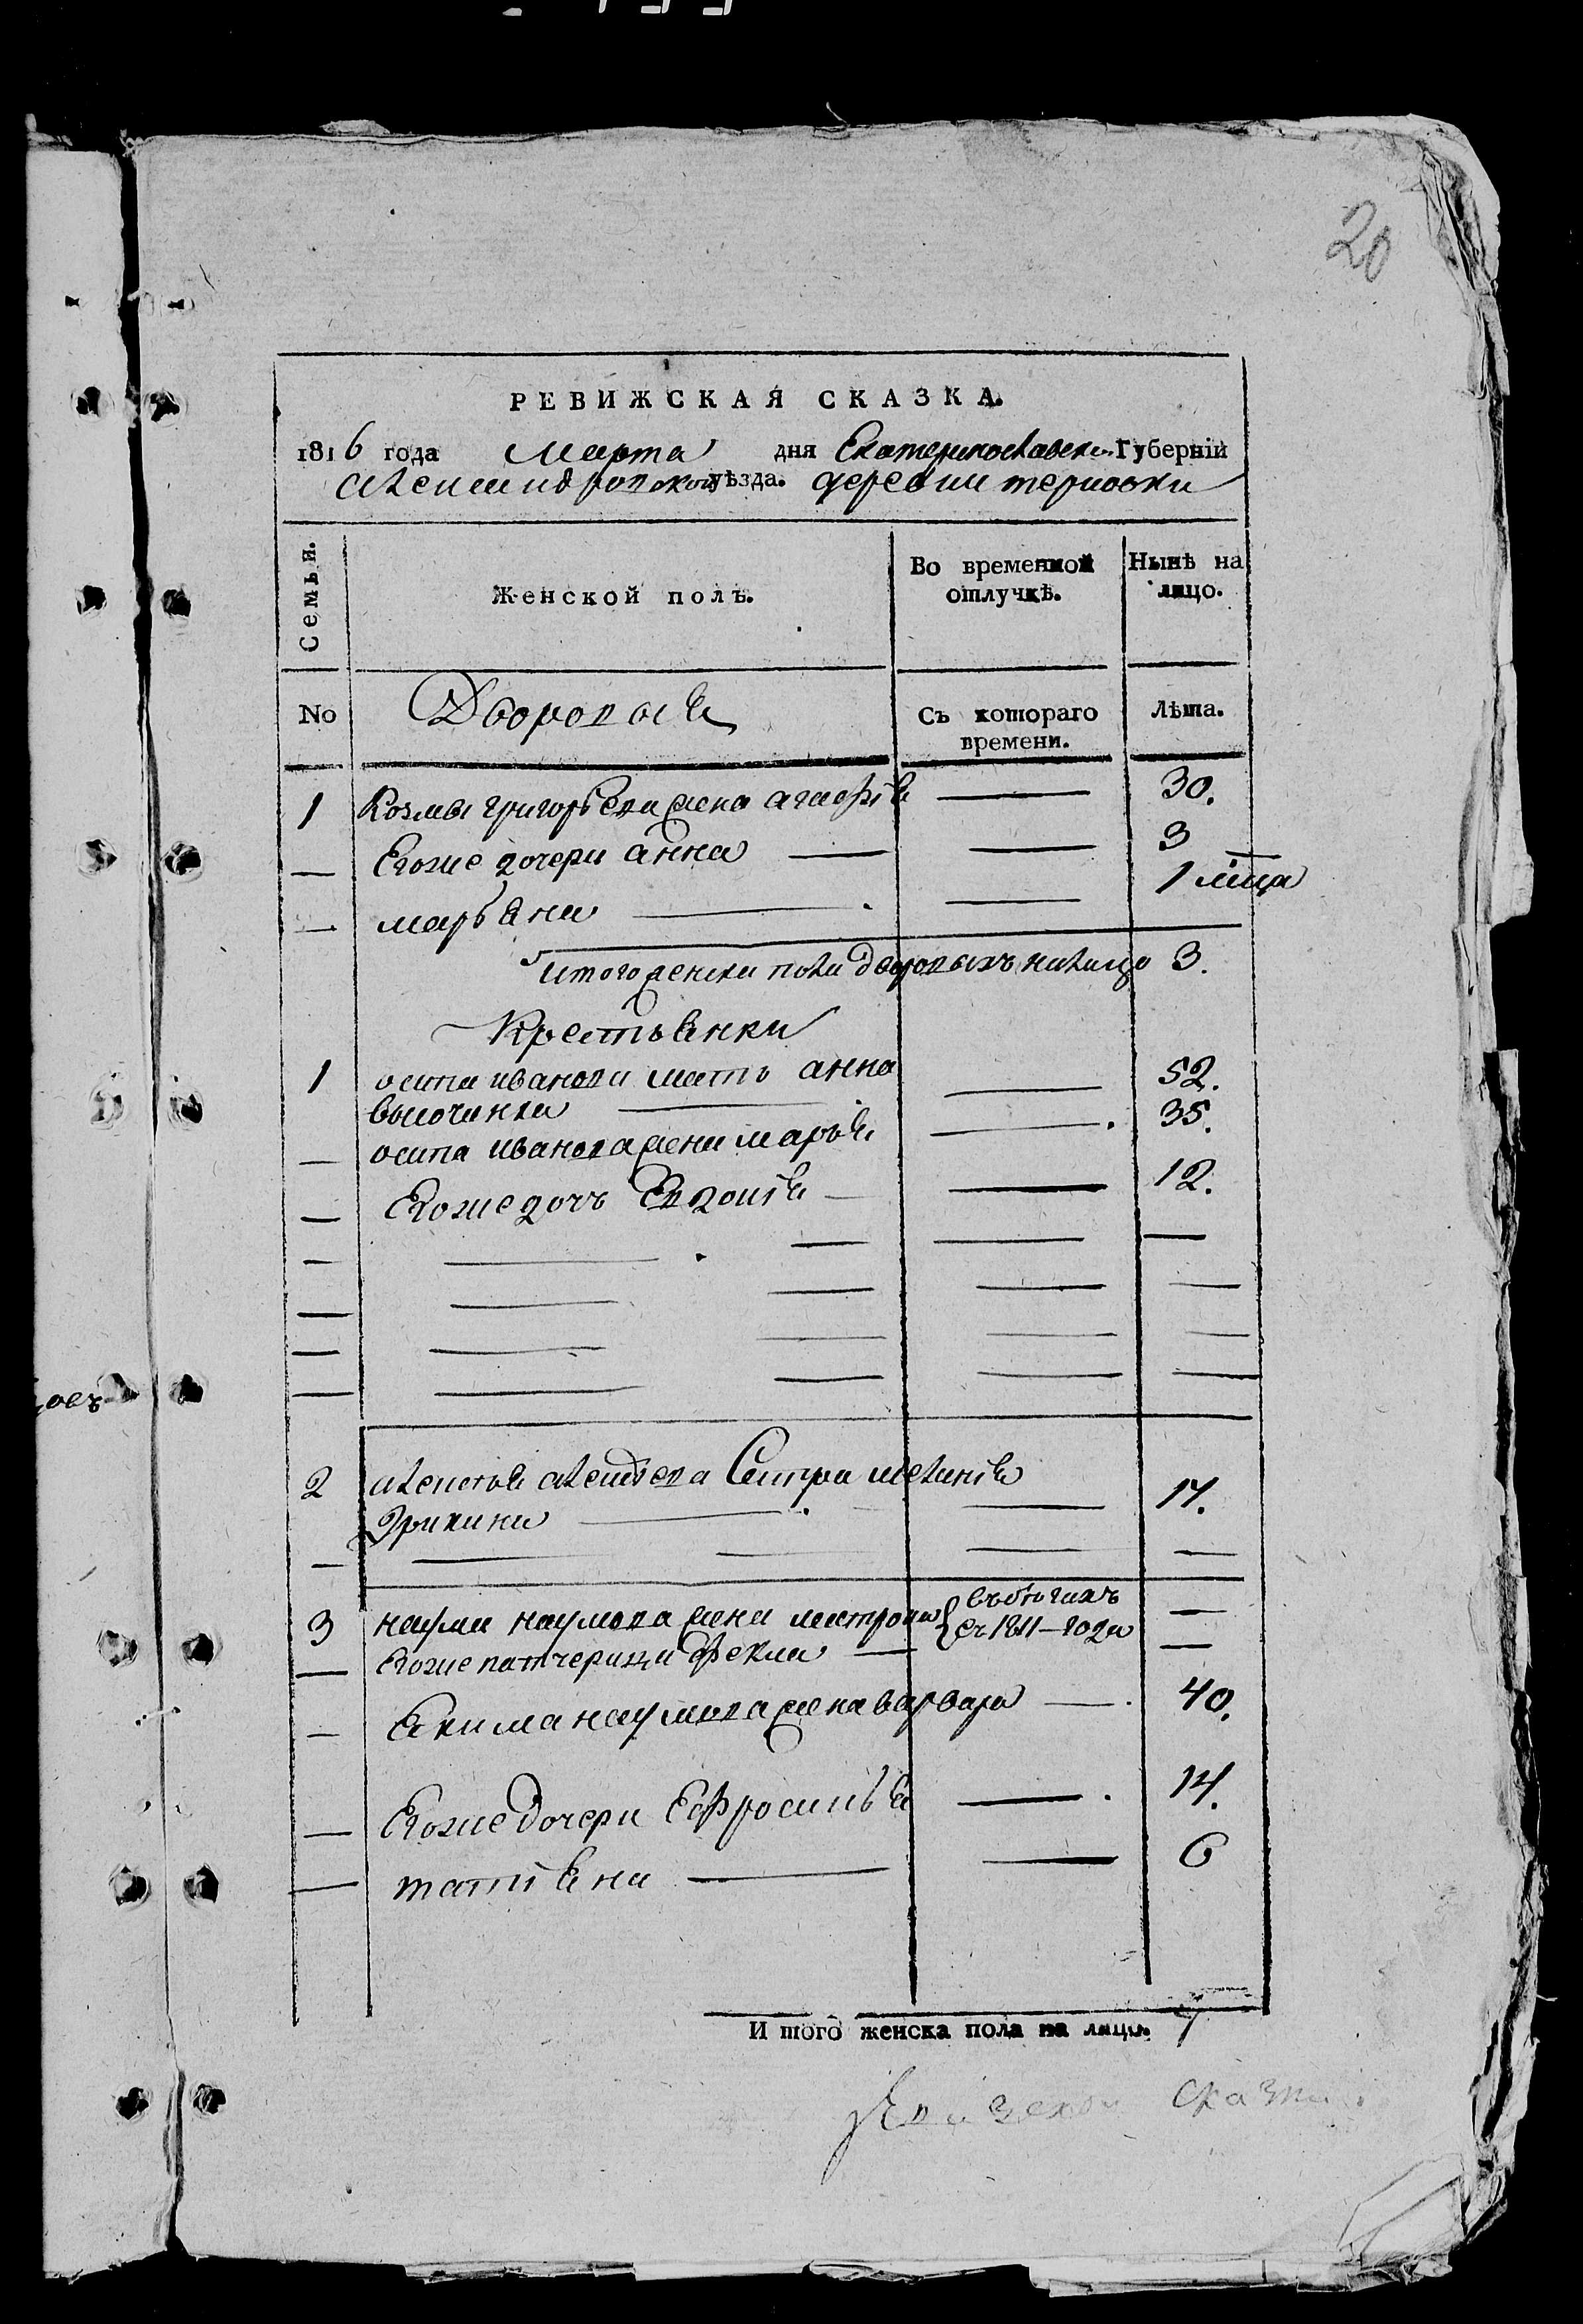 20
РЕВИЖСКАЯ СКАЗКА.
1816 года марта дня Екатеринославской Губерніи
александровской уѣзда. деревни терновки
Семьи. Женской полъ. Во временной отлучкѣ. Нынѣ на лицо.
No Дворовыя Съ котораго времени. Лѣта.
1 Козмы григорьева жена агафія — 30.
— Евоже дочери анна — — 3
— марьяна — — 1 мца
итого женска пола дворовыхъ налицо 3.
Крестьянки
1 осипа иванова мать анна — 52.
высочина —
— осипа иванова жена марья — 35.
— Евоже дочь Евдокія — — 12.
2 алексея алексеева Сестра меланія — 17.
—
3 наума наумова жена матрона { въбегахъ —
— Евоже патчерица Фекла — съ 1811 – года —
— Якима наумова жена варвара — 40.
— Евоже дочери Ефросинья — 14.
— татіяна — — 6
И того женска пола на лицо. 7
Сказки